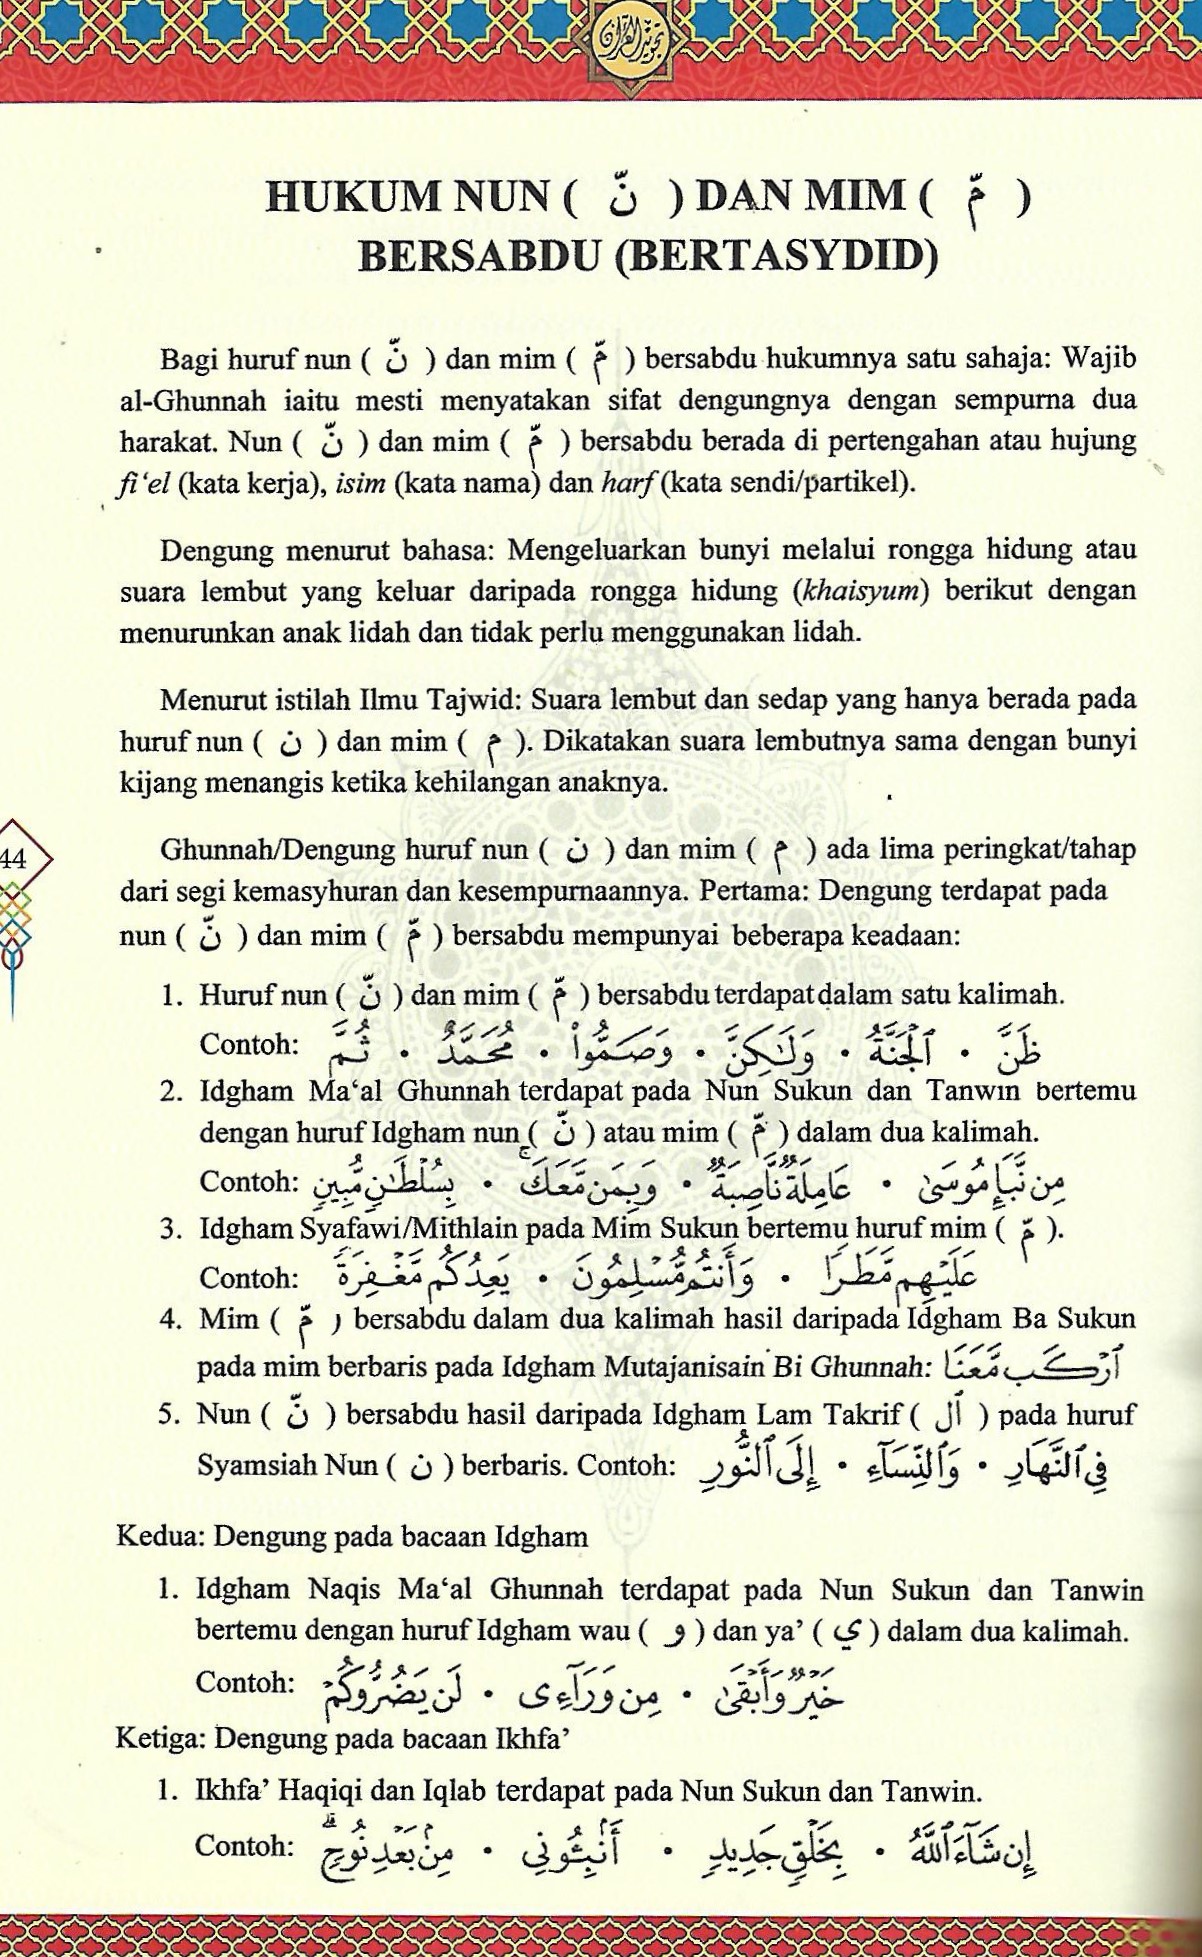 تجويد القرآن
HUKUM NUN ( نّ ) DAN MIM ( مّ )
BERSABDU (BERTASYDID)
Bagi huruf nun ( نّ ) dan mim ( مّ ) bersabdu hukumnya satu sahaja: Wajib
al-Ghunnah iaitu mesti menyatakan sifat dengungnya dengan sempurna dua
harakat. Nun ( نّ ) dan mim ( مّ ) bersabdu berada di pertengahan atau hujung
fi‘el (kata kerja), isim (kata nama) dan harf (kata sendi/partikel).
Dengung menurut bahasa: Mengeluarkan bunyi melalui rongga hidung atau
suara lembut yang keluar daripada rongga hidung (khaisyum) berikut dengan
menurunkan anak lidah dan tidak perlu menggunakan lidah.
Menurut istilah Ilmu Tajwid: Suara lembut dan sedap yang hanya berada pada
huruf nun ( ن ) dan mim ( م ). Dikatakan suara lembutnya sama dengan bunyi
kijang menangis ketika kehilangan anaknya.
44
Ghunnah/Dengung huruf nun ( ن ) dan mim ( م ) ada lima peringkat/tahap
dari segi kemasyhuran dan kesempurnaannya. Pertama: Dengung terdapat pada
nun ( نّ ) dan mim ( مّ ) bersabdu mempunyai beberapa keadaan:
1. Huruf nun ( نّ ) dan mim ( مّ ) bersabdu terdapat dalam satu kalimah.
Contoh: ظَنَّ • ٱلْجَنَّةُ • وَلَـٰكِنَّ • وَصَمُّوا۟ • مُحَمَّدٌ • ثُمَّ
2. Idgham Ma‘al Ghunnah terdapat pada Nun Sukun dan Tanwin bertemu
dengan huruf Idgham nun ( نّ ) atau mim ( مّ ) dalam dua kalimah.
Contoh: مِن نَّبَإِ مُوسَىٰ • عَامِلَةٌ نَّاصِبَةٌ • وَبِمَن مَّعَكَ ۚ • بِسُلْطَـٰنٍ مُّبِينٍ
3. Idgham Syafawi/Mithlain pada Mim Sukun bertemu huruf mim ( مّ ).
Contoh: عَلَيْهِم مَّطَرًا • وَأَنتُم مُّسْلِمُونَ • يَعِدُكُم مَّغْفِرَةً
4. Mim ( مّ ) bersabdu dalam dua kalimah hasil daripada Idgham Ba Sukun
pada mim berbaris pada Idgham Mutajanisain Bi Ghunnah: ٱرْكَب مَّعَنَا
5. Nun ( نّ ) bersabdu hasil daripada Idgham Lam Takrif ( اَل ) pada huruf
Syamsiah Nun ( ن ) berbaris. Contoh: فِى ٱلنَّهَارِ • وَٱلنِّسَآءِ • إِلَى ٱلنُّورِ
Kedua: Dengung pada bacaan Idgham
1. Idgham Naqis Ma‘al Ghunnah terdapat pada Nun Sukun dan Tanwin
bertemu dengan huruf Idgham wau ( و ) dan ya’ ( ي ) dalam dua kalimah.
Contoh: خَيْرٌ وَأَبْقَىٰ • مِن وَرَآءِى • لَن يَضُرُّوكُمْ
Ketiga: Dengung pada bacaan Ikhfa’
1. Ikhfa’ Haqiqi dan Iqlab terdapat pada Nun Sukun dan Tanwin.
Contoh: إِن شَآءَ ٱللَّهُ • بِخَلْقٍ جَدِيدٍ • أَنۢبِـُٔونِي • مِنۢ بَعْدِ نُوحٍ ۗ